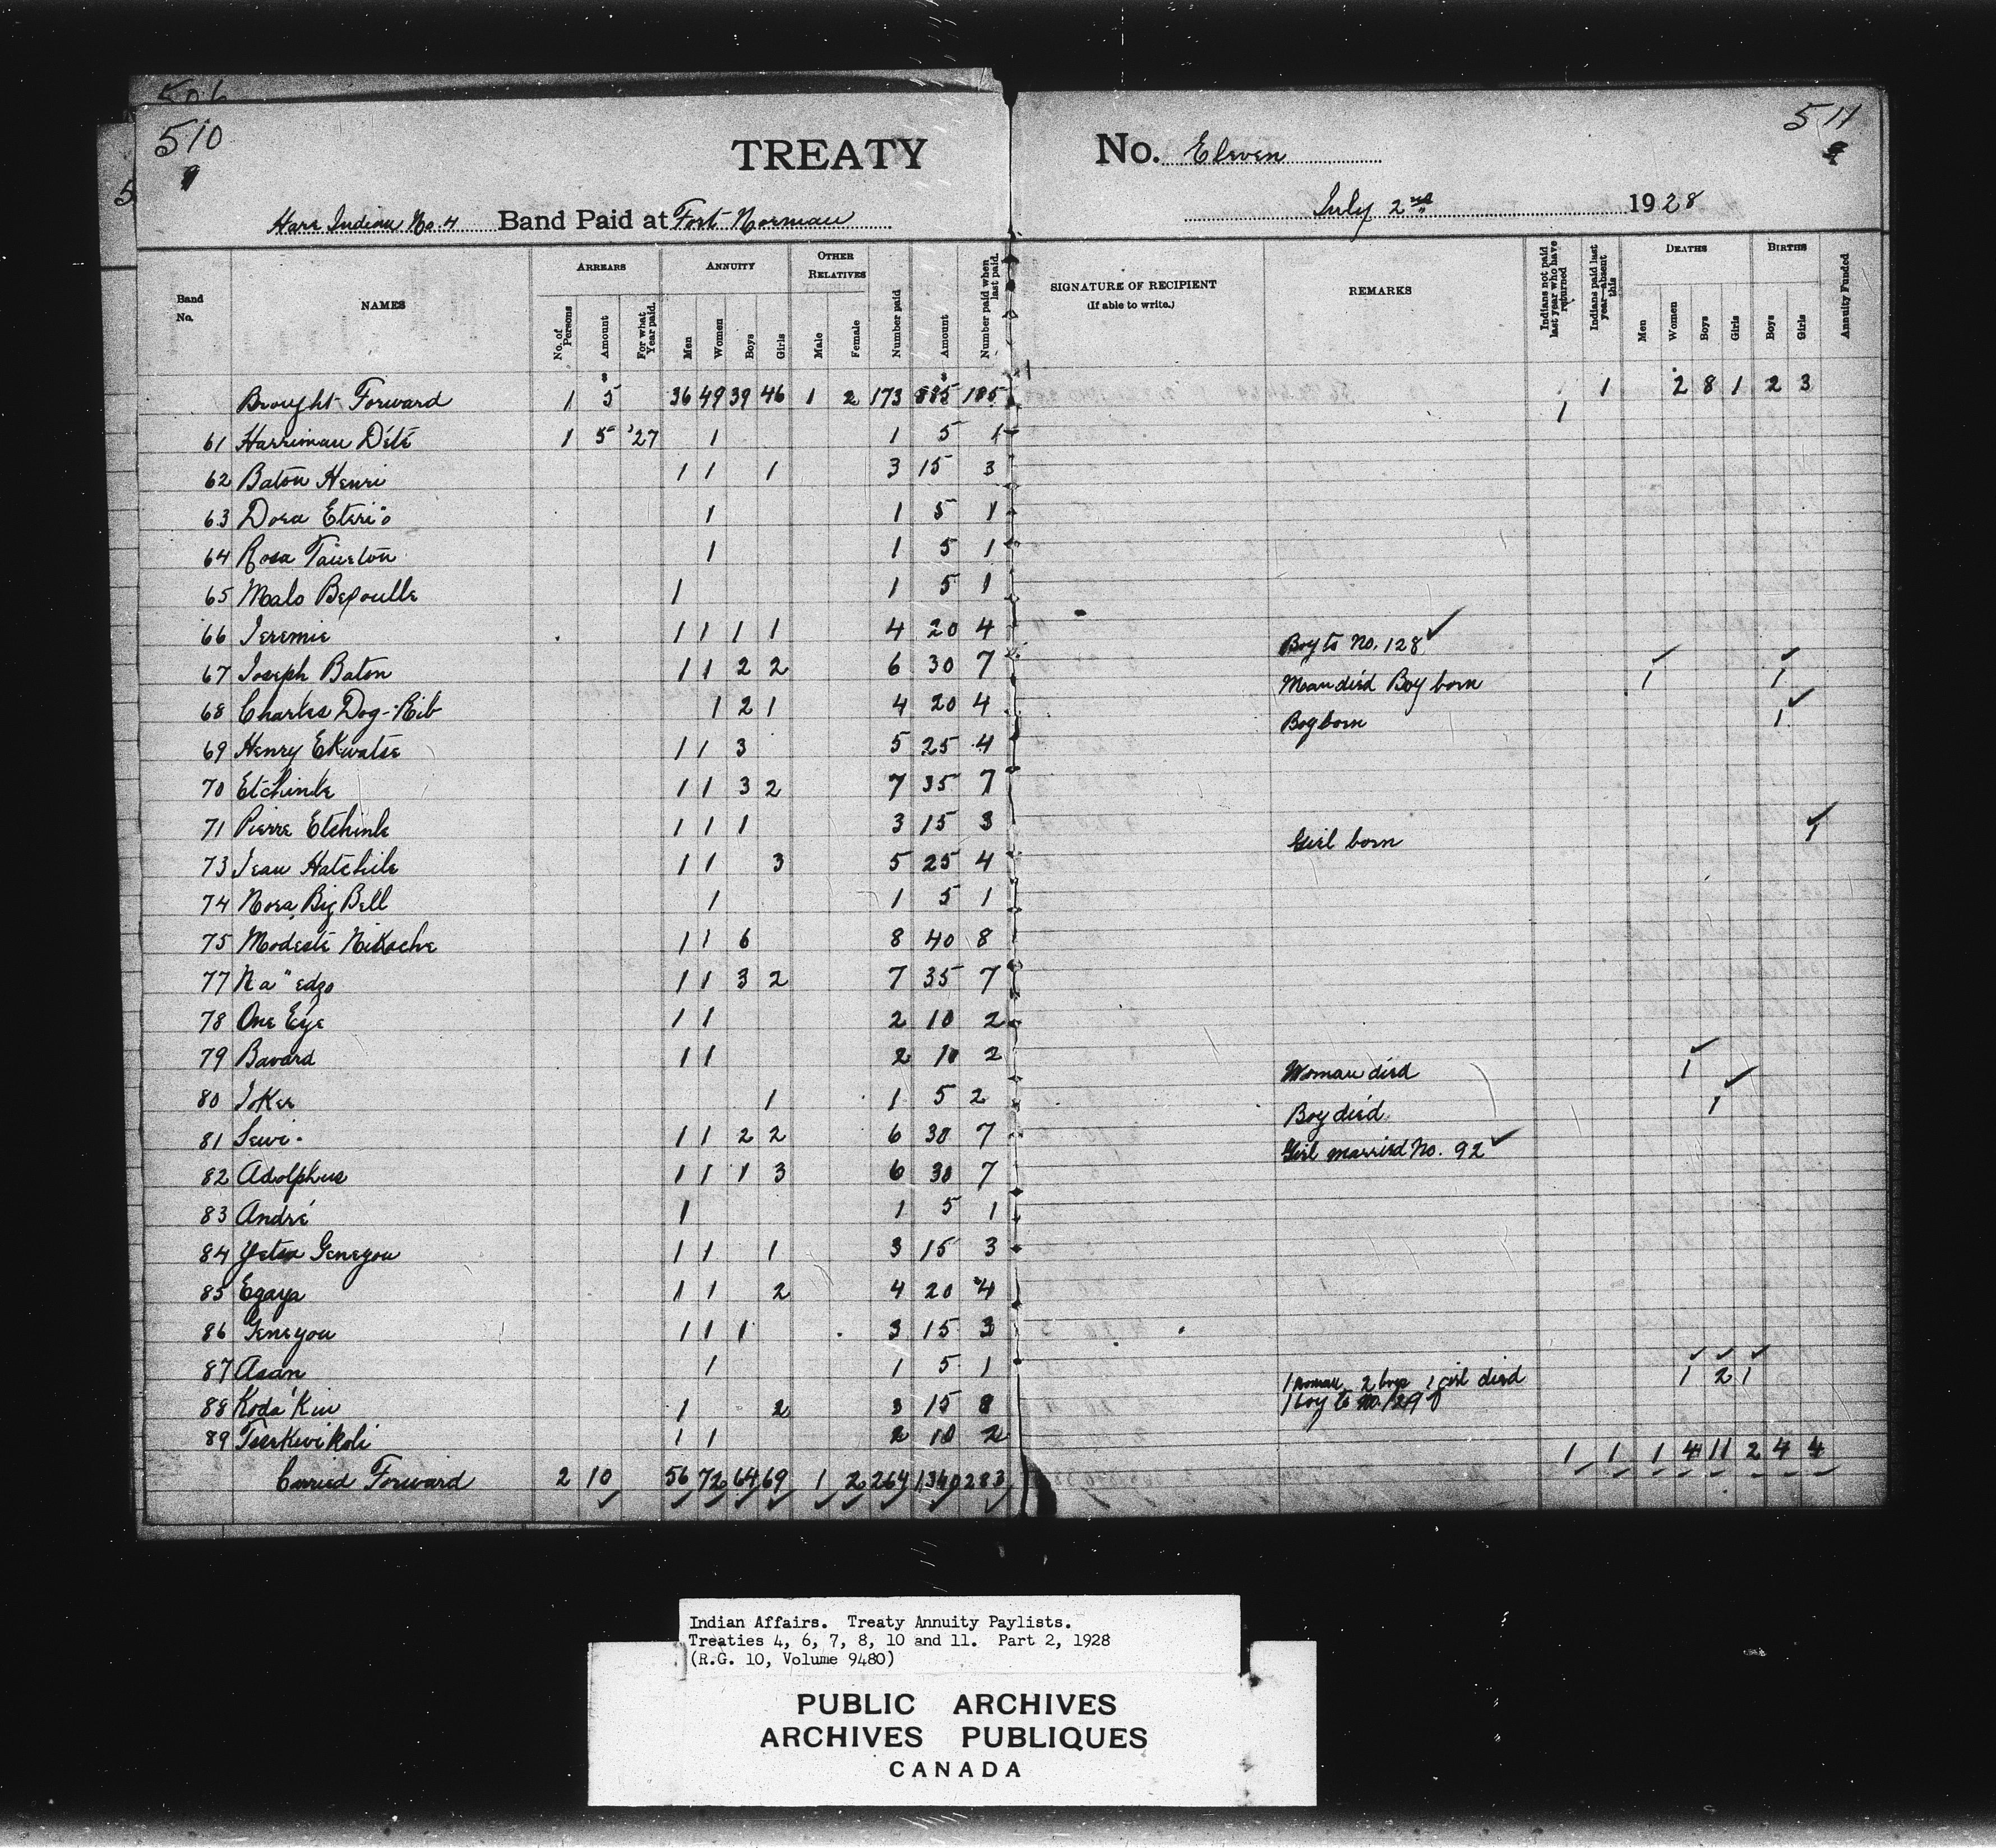 506
510
511
9
9
5
TREATY No. Eleven
Hare Indian No. 4 Band Paid at Fort Norman July 2nd 1928
Band No. NAMES ARREARS ANNUITY OTHER RELATIVES Number paid Amount Number paid when last paid. SIGNATURE OF RECIPIENT (If able to write.) REMARKS Indians not paid last year who have returned Indians paid last year—absent this DEATHS BIRTHS Annuity Funded
No. of Persons Amount For what Year paid. Men Women Boys Girls Male Female Men Women Boys Girls Boys Girls
Brought Forward 1 5 36 49 39 46 1 2 173 885 185 1 2 8 1 2 3
61 Harriman Dété 1 5 '27 1 1 5 1 1
62 Baton Henri 1 1 1 3 15 3
63 Dora Eteri'o 1 1 5 1
64 Rosa Taueton 1 1 5 1
65 Malo Bepoulle 1 1 5 1
66 Jeremie 1 1 1 1 4 20 4
67 Joseph Baton 1 1 2 2 6 30 7 Boy to No. 128
68 Charles Dog-Rib 1 2 1 4 20 4 Man died Boy born 1 1
69 Henry Ekwatse 1 1 3 5 25 4 Boy born 1
70 Etchinle 1 1 3 2 7 35 7
71 Pierre Etchinle 1 1 1 3 15 3
73 Jean Hatchile 1 1 3 5 25 4 Girl born 1
74 Nora Big Bell 1 1 5 1
75 Modeste Nikoche 1 1 6 8 40 8
77 Na" edzo 1 1 3 2 7 35 7
78 One Eye 1 1 2 10 2
79 Bavard 1 1 2 10 2
80 Joker 1 1 5 2 Woman died 1
81 Sewi 1 1 2 2 6 30 7 Boy died 1
82 Adolphus 1 1 1 3 6 30 7 Girl married No. 92
83 André 1 1 5 1
84 Yetsa Geneyou 1 1 1 3 15 3
85 Egaya 1 1 2 4 20 4
86 Geneyou 1 1 1 3 15 3
87 Asan 1 1 5 1
88 Koda'Kin 1 2 3 15 8 1 woman 2 boys 1 girl died 1 boy to No. 129 1 2 1
89 Tserkwikoli 1 1 2 10 2
Carried Forward 2 10 56 72 64 69 1 2 264 1340 283 1 1 1 4 11 2 4 4
Indian Affairs. Treaty Annuity Paylists.
Treaties 4, 6, 7, 8, 10 and 11. Part 2, 1928
(R.G. 10, Volume 9480)
PUBLIC ARCHIVES
ARCHIVES PUBLIQUES
CANADA